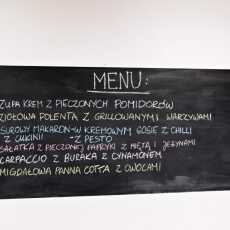 MENU:
ZUPA KREM Z PIECZONYCH POMIDORÓW
ZIOŁOWA POLENTA Z GRILLOWANYMI WARZYWAMI
SUROWY MAKARON-W KREMOWYM SOSIE Z CHILLI
Z CUKINII -Z PESTO
SAŁATKA Z PIECZONEJ PAPRYKI Z MIĘTĄ I JEŻYNAMI
CARPACCIO Z BURAKA Z CYNAMONEM
MIGDAŁOWA PANNA COTTA Z OWOCAMI